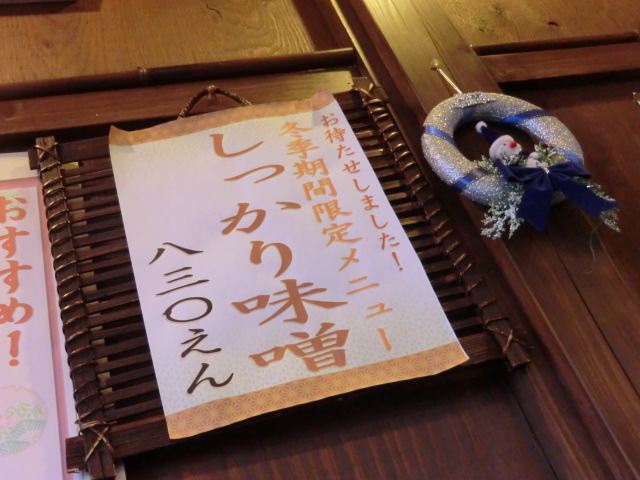 お待たせしました!
冬季期間限定メニュー
しっかり味噌
八三〇えん
おすすめ!